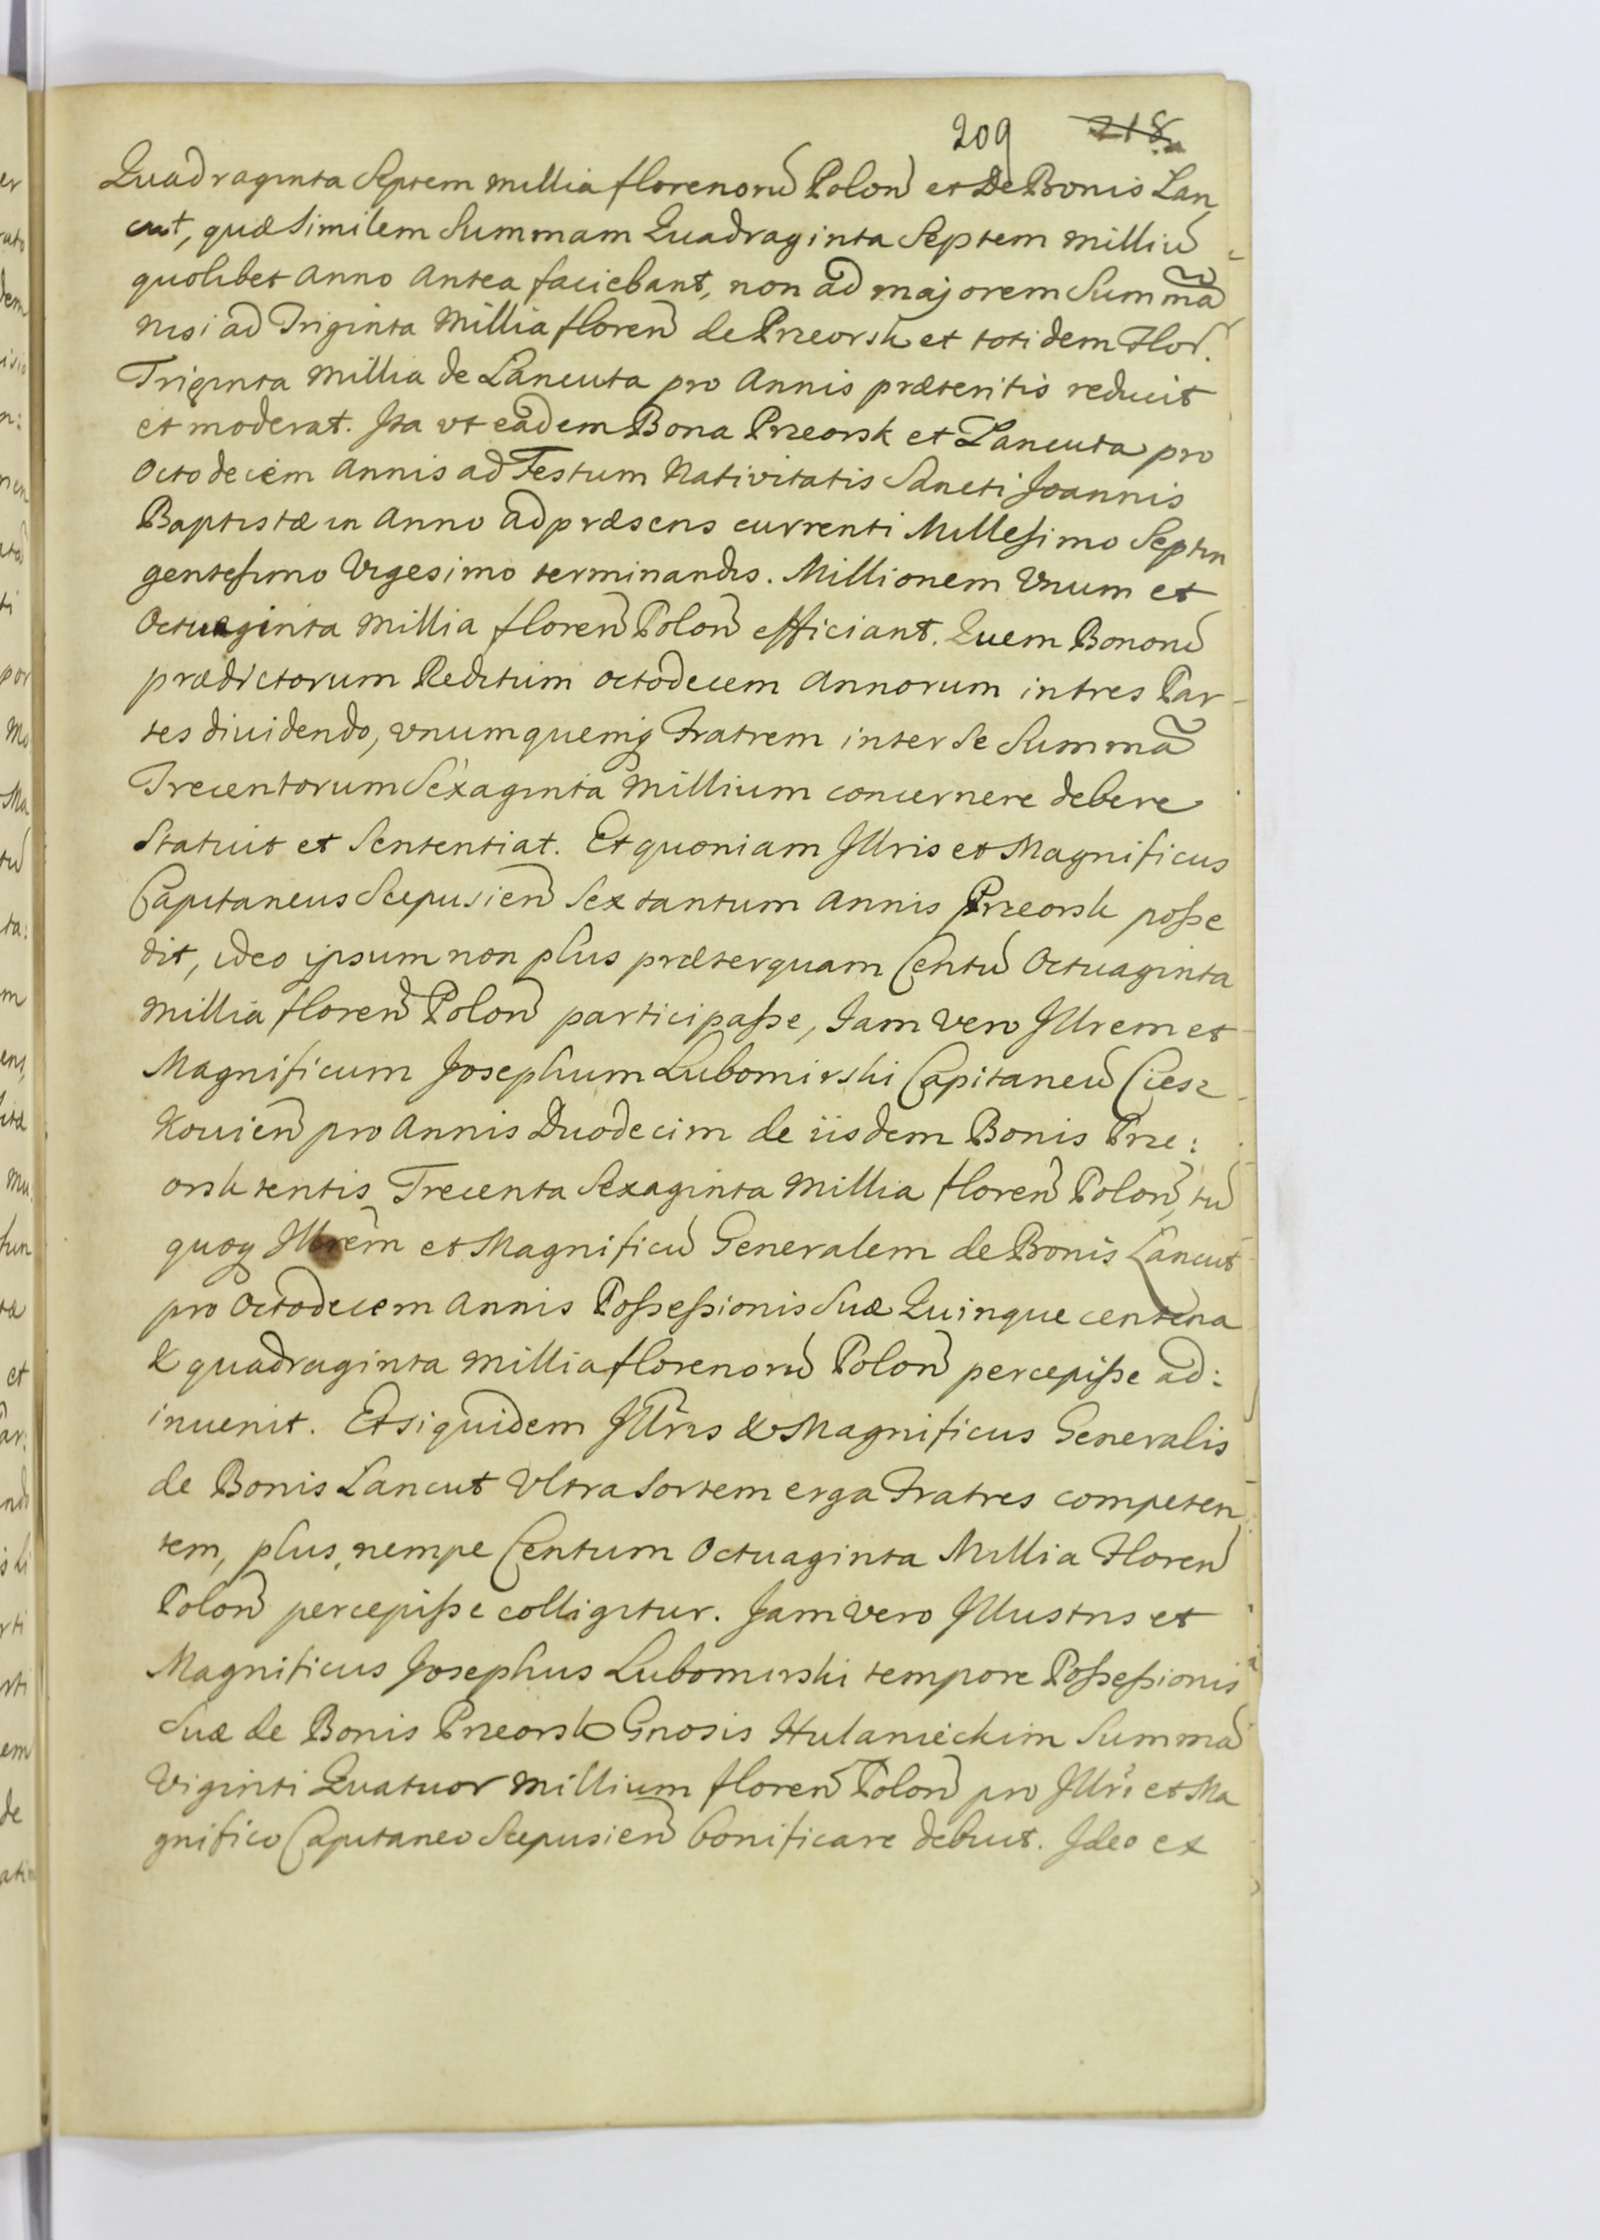 209 218
Quadraginta Septem millia florenorũ Polon̄ et De Bonis Lan
cut, quæ Similem Summam Quadraginta Septem millium̃
quolibet Anno Antea faciebant, non ad majorem Summã
nisi ad Triginta Millia floren̄ de Przeorsk et totidem Flor.
Triginta Millia de Lancuta pro Annis præteritis reducit
et moderat. Ita vt eadem Bona Przeorsk et Lancuta pro
Octodecem Annis ad Festum Nativitatis Sancti Joannis
Baptistæ in Anno ad præsens currenti Millesimo Septin
gentesimo Vigesimo terminandis. Millionem Vnum et
Octuaginta Millia floren̄ Polon̄ efficiant. Quem Bonorũ
prædictorum Reditum octodecem Annorum in tres Par-
tes diuidendo, vnumquemq Fratrem inter Se Summã
Trecentorum Sexaginta Millium concernere debere
Statuit et Sententiat. Et quoniam Jllris et Magnificus
Capitaneus Scepusien̄ Sex tantum Annis Przeorsk posse
dit, ideo ipsum non plus præterquam Centũ Octuaginta
Millia floren̄ Polon̄ participasse, Jam vero Jllrem et
Magnificum Josephum Lubomirski Capitaneũ Ciesz-
kouien̄ pro Annis Duodecim de iisdem Bonis Prze:
orsk tentis Trecenta Sexaginta Millia floren̄ Polon̄, tũ
quoq Jllrem et Magnificũ Generalem de Bonis Lancut
pro Octodecem Annis Possessionis Suæ Quinque centena
& quadraginta Millia florenorũ Polon̄ percepisse ad:
inuenit. Et siquidem Jllris & Magnificus Generalis
de Bonis Lancut Vltra Sortem erga Fratres competen
tem, plus, nempe Centum Octuaginta Millia Floren̄
Polon̄ percepisse colligitur. Jam vero Jllustris et
Magnificus Josephus Lubomirski tempore Possessionis
Suæ de Bonis Przeorsk Gnosis Hulanieckim Summã
Viginti Quatuor Millium floren̄ Polon̄ pro Jllri et Ma
gnifico Capitaneo Scepusien̄ bonificare debuit. Ideo ex